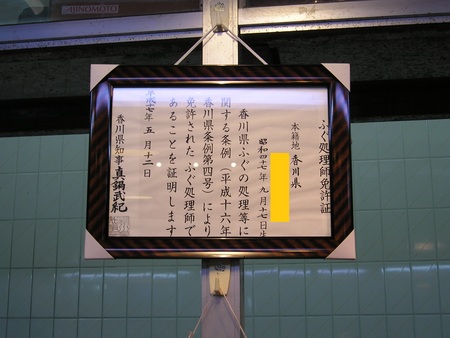 AJINOMOTO
ふぐ処理師免許証
本籍地 香川県
昭和四十七年 九月十七日生
香川県ふぐの処理等に
関する条例(平成十六年
香川県条例第四号)により
免許されたふぐ処理師で
あることを証明します
平成十七年 五月十二日
香川県知事 真鍋武紀